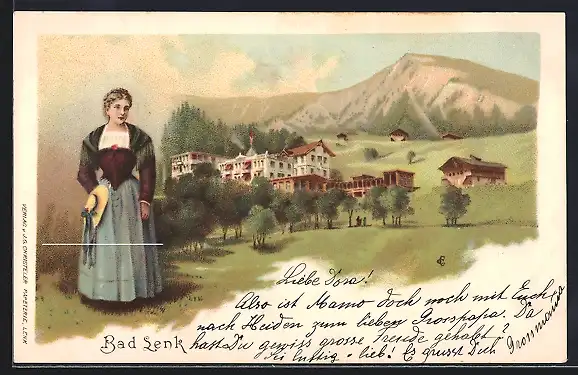 VERLAG v. J.G. CHRISTELER PAPETERIE, LENK
Bad Lenk
Liebe Dora!
Also ist Mamo doch noch mit Euch
nach Heiden zum lieben Grosspapa. Da
hatt Du gewiss grosse Freude gehabt?
Sei luftig - lieb! Es grüsst Dich
Grossmama